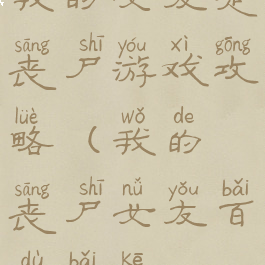 我的女友是
sāng shī yóu xì gōng
丧尸游戏攻
lüè wǒ de
略(我的
sāng shī nǚ yǒu bǎi
丧尸女友百
dù bǎi kē